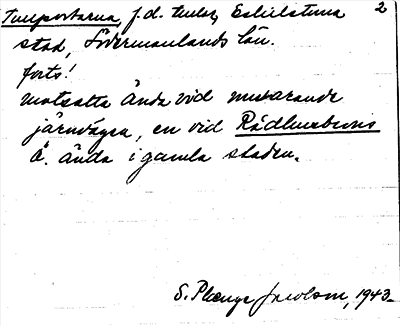 Tullportarna, f.d. tullar, Eskilstuna 2
stad, Södermanlands län.
forts!
motsatta ända vid nuvarande
järnvägen, en vid Rådhusbrons
Ö. ända i gamla staden.
S. Plænge Jacobson, 1943.